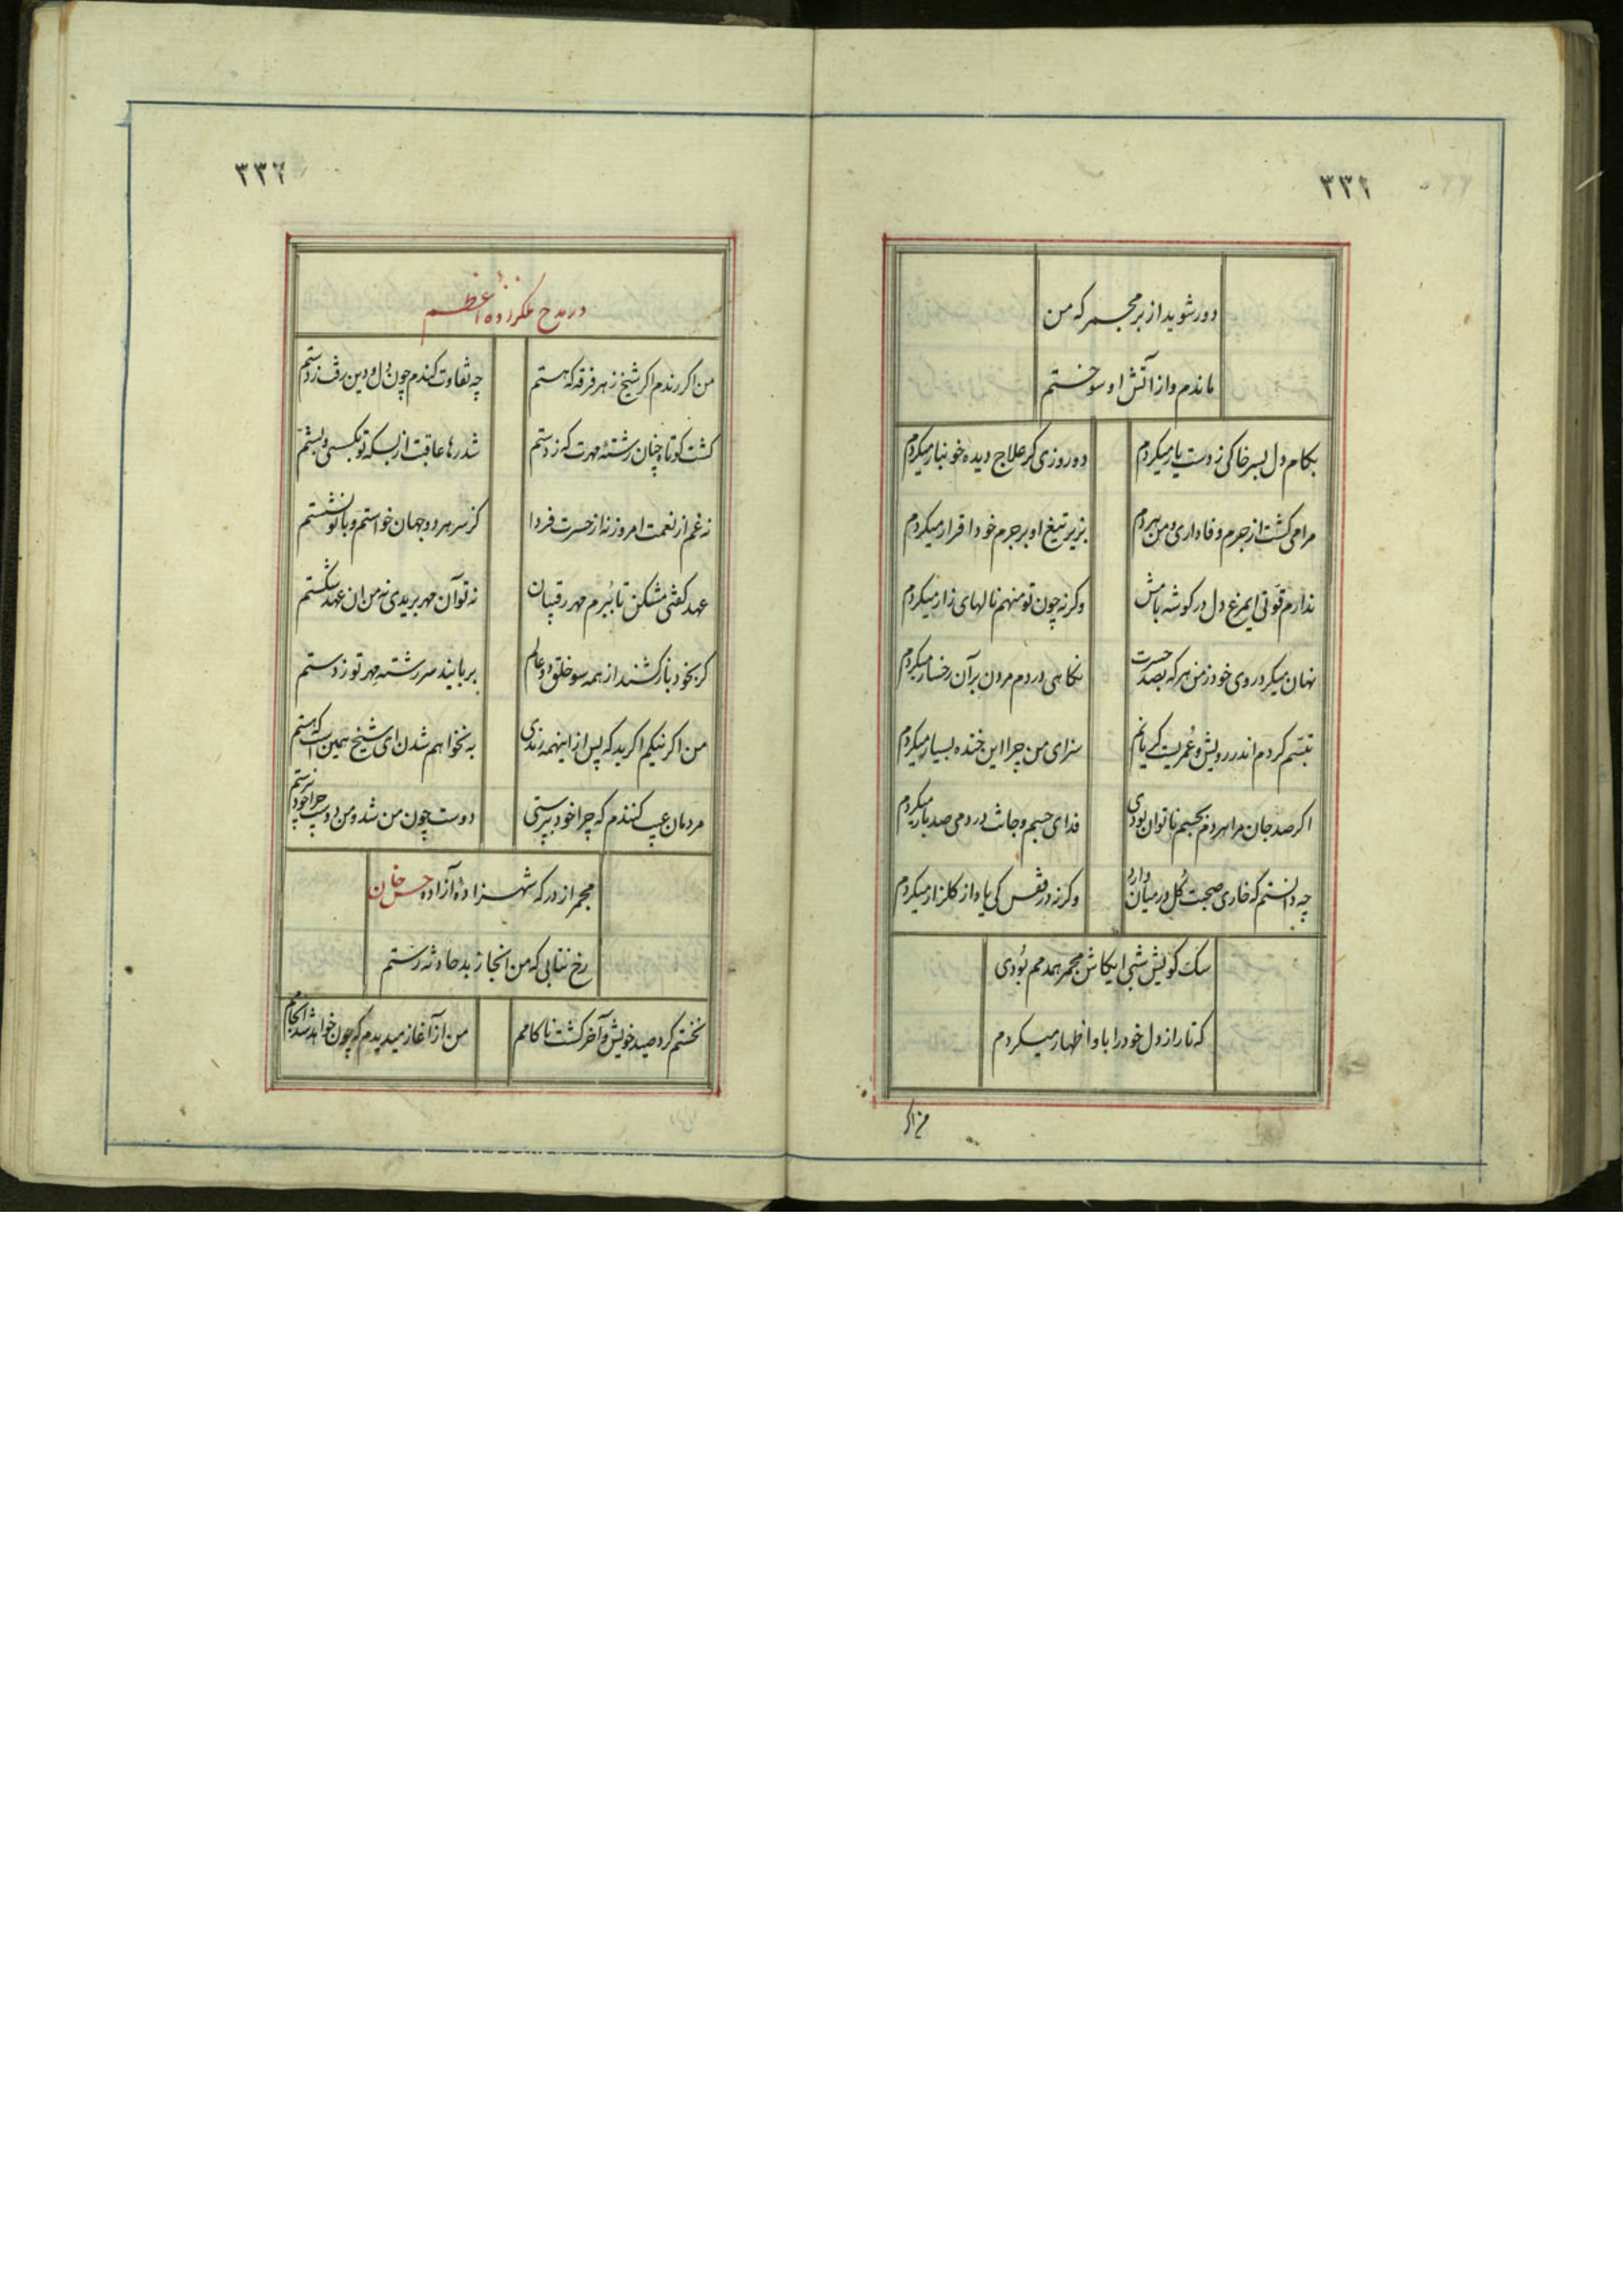 ۳۳۱
دور شوید از بر مجمر که من
ماندم و از آتش او سوختم
بکام دل بسر خاکی ز دست یار میکردم
دو روزی کر علاج دیده خونبار میکردم
مرا می کشت از جرم وفاداری و من هر دم
بزیر تیغ او بر جرم خود اقرار میکردم
ندارم قوتی ایمرغ دل در کوشه بامش
وکرنه چون تو منهم نالهای زار میکردم
نهان میکرد روی خود ز من هر که بصد حسرت
نکاهی در دم مردن بر آن رخسار میکردم
تبسم کردم اندر رویش و عمریست کریانم
سزای من چرا این خنده بسیار میکردم
اکر صد جان مرا هر دم بجسم ناتوان بودی
فدای جسم و جانش در دمی صد بار میکردم
چه دانستم که خاری صحبت کل در میان دارد
وکرنه در قفس کی یاد از کلزار میکردم
سک کویش شبی ایکاش مجمر همدمم بودی
که تا راز دل خود را باو اظهار میکردم
من اکر
۳۳۲
در مدح ملکزاده اعظم
من اکر رندم اکر شیخ ز هر فرقه که هستم
چه تفاوت کندم چون دل و دین رفت ز دستم
کشت کوتاه چنان رشتهٔ مهرت که ز دستم
شد رها عاقبت از بسکه تو بکسستی و بستم
نه غم از نعمت امروز نه از حسرت فردا
کز سر هر دو جهان خواستم و با تو نشستم
عهد کفتی مشکن تا ببرم مهر رقیبان
نه تو آن مهر بریدی نه من ان عهد شکستم
کر بخود باز کشند از همه سو خلق دو عالم
بربایند سر رشته مهر تو ز دستم
من اکر نیکم اکر بد که پس از اینهمه رندی
به نخواهم شدن ای شیخ همین است که هستم
مردمان عیب کنندم که چرا خود بپرستی
دوست چون من شد و من دوست چرا خود نپرستم
مجمر از درکه شهزادهٔ آزاده حسن خان
رخ نتابی که من انجا ز بد حادثه رستم
نخستم کرد صید خویش و آخر کشت ناکامم
من از آغاز میدیدم که چون خواهد شد انجامم